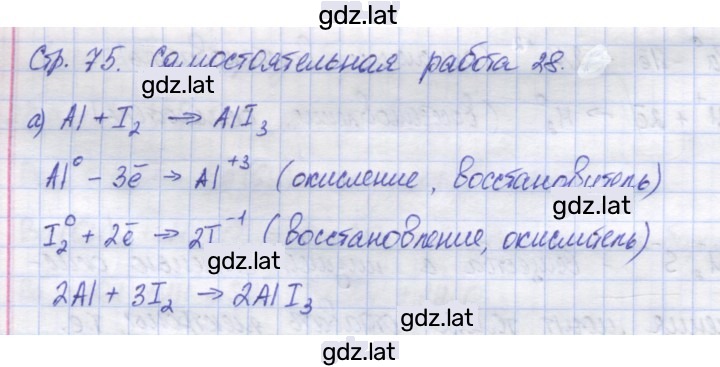 gdz.lat
Стр. 75. Самостоятельная работа 28.
gdz.lat
а) Al + I₂ → AlI₃
gdz.lat
Al⁰ - 3ē → Al⁺³ (окисление, восстановитель)
gdz.lat
I₂⁰ + 2ē → 2I⁻¹ (восстановление, окислитель)
gdz.lat
2Al + 3I₂ → 2AlI₃
gdz.lat
gdz.lat